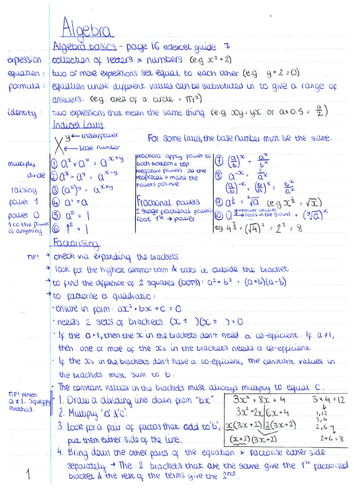 Algebra
Algebra basics - page 16 edexcel guide
expression collection of letters & numbers (e.g x² + 2)
equation: two or more expressions set equal to each other (e.g. y + 2 = 0)
formula: equation where different values can be substituted in to give a range of
answers. (e.g. area of a circle = πr²)
identity: two expressions that mean the same thing (e.g. xy = yx or a×0.5 = a/2)
Indices Laws
y ← index/power
x ← base number
For some laws, the base number must be the same.
multiply ① aˣ × aʸ = aˣ⁺ʸ
divide ② aˣ ÷ aʸ = aˣ⁻ʸ
raising ③ (aˣ)ʸ = aˣˣʸ
power 1 ④ a¹ = a
power 0 ⑤ a⁰ = 1
1 to the power of anything ⑥ 1ˣ = 1
Fractions apply power to
both bottom & top
Negative powers do the
reciprocal & make the
powers positive
Fractional powers
2 stage fractional powers
root 1st → power
⑦ (a/b)ˣ = aˣ/bˣ
⑧ a⁻ˣ = 1/aˣ
(a/b)⁻ˣ = (b/a)ˣ = bˣ/aˣ
(e.g x^½ = √x)
eg 4^(3/2) = (√4)³ = 2³ = 8
Factorising
TIP! → check via expanding the brackets
→ look for the highest common term & take it outside the bracket
→ to find the difference of 2 squares (DOTS): a² - b² = (a+b)(a-b)
→ to factorise a quadratic:
• ensure in form: ax² + bx + c = 0
• needs 2 sets of brackets (x ± )(x ± ) = 0
• If the a = 1, then the x in the brackets don't need a co-efficient. If a ≠ 1,
then one or more of the xs in the brackets needs a co-efficient
• If the xs in the brackets don't have a co-efficient, the constant values in
the brackets must sum to b.
• The constant values in the brackets must always multiply to equal c.
TIP! When a ≠ 1:
method
1. Draw a dividing line down from "bx"
2. Multiply 'a' & 'c'.
3. Look for a pair of factors that add to 'b',
put them either side of the line.
3x² + 8x + 4
3x² + 2x | 6x + 4
x(3x+2) | 2(3x+2)
(x+2)(3x+2)
3 × 4 = 12
1, 12
3, 4
2, 6
2+6 = 8
4. Bring down the other parts of the equation & factorise either side
separately → The 2 brackets that are the same give the 1st factorised
bracket & the rest of the terms give the 2nd.
1